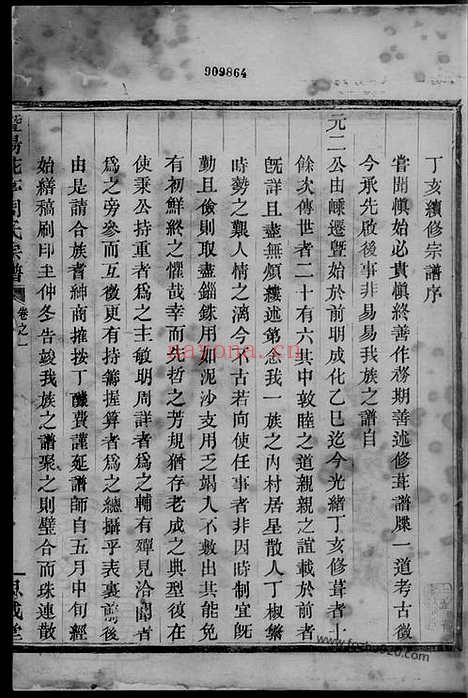 909864
丁亥續修宗譜序
嘗聞慎始必貴慎終善作務期善述修葺譜牒一道考古徵
今承先啟後事非易易我族之譜自
元二公由嵊遷暨始於前明成化乙巳迄今光緒丁亥修葺者十
餘次傳世者二十有六其中敦睦之道親親之誼載於前者
既詳且盡無煩縷述第念我一族之內村居星散人丁椒繁
時勢之艱人情之漓今不古若向使任事者非因時制宜既
勤且儉則取盡錙銖用如泥沙支用乏竭入不敷出其能免
有初鮮終之懼哉幸而前哲之芳規猶存老成之典型彼在
使秉公持重者為之主敏明周詳者為之輔有殫見洽聞者
為之旁參而互徵更有持籌握算者為之總攝乎表裏前後
由是請合族耆紳商搉按丁釀費謹延譜師自五月中旬經
始繕稿刷印主仲冬告竣我族之譜聚之則璧合而珠連散
暨陽花亭周氏宗譜
卷之一
思成堂
nayona.cn